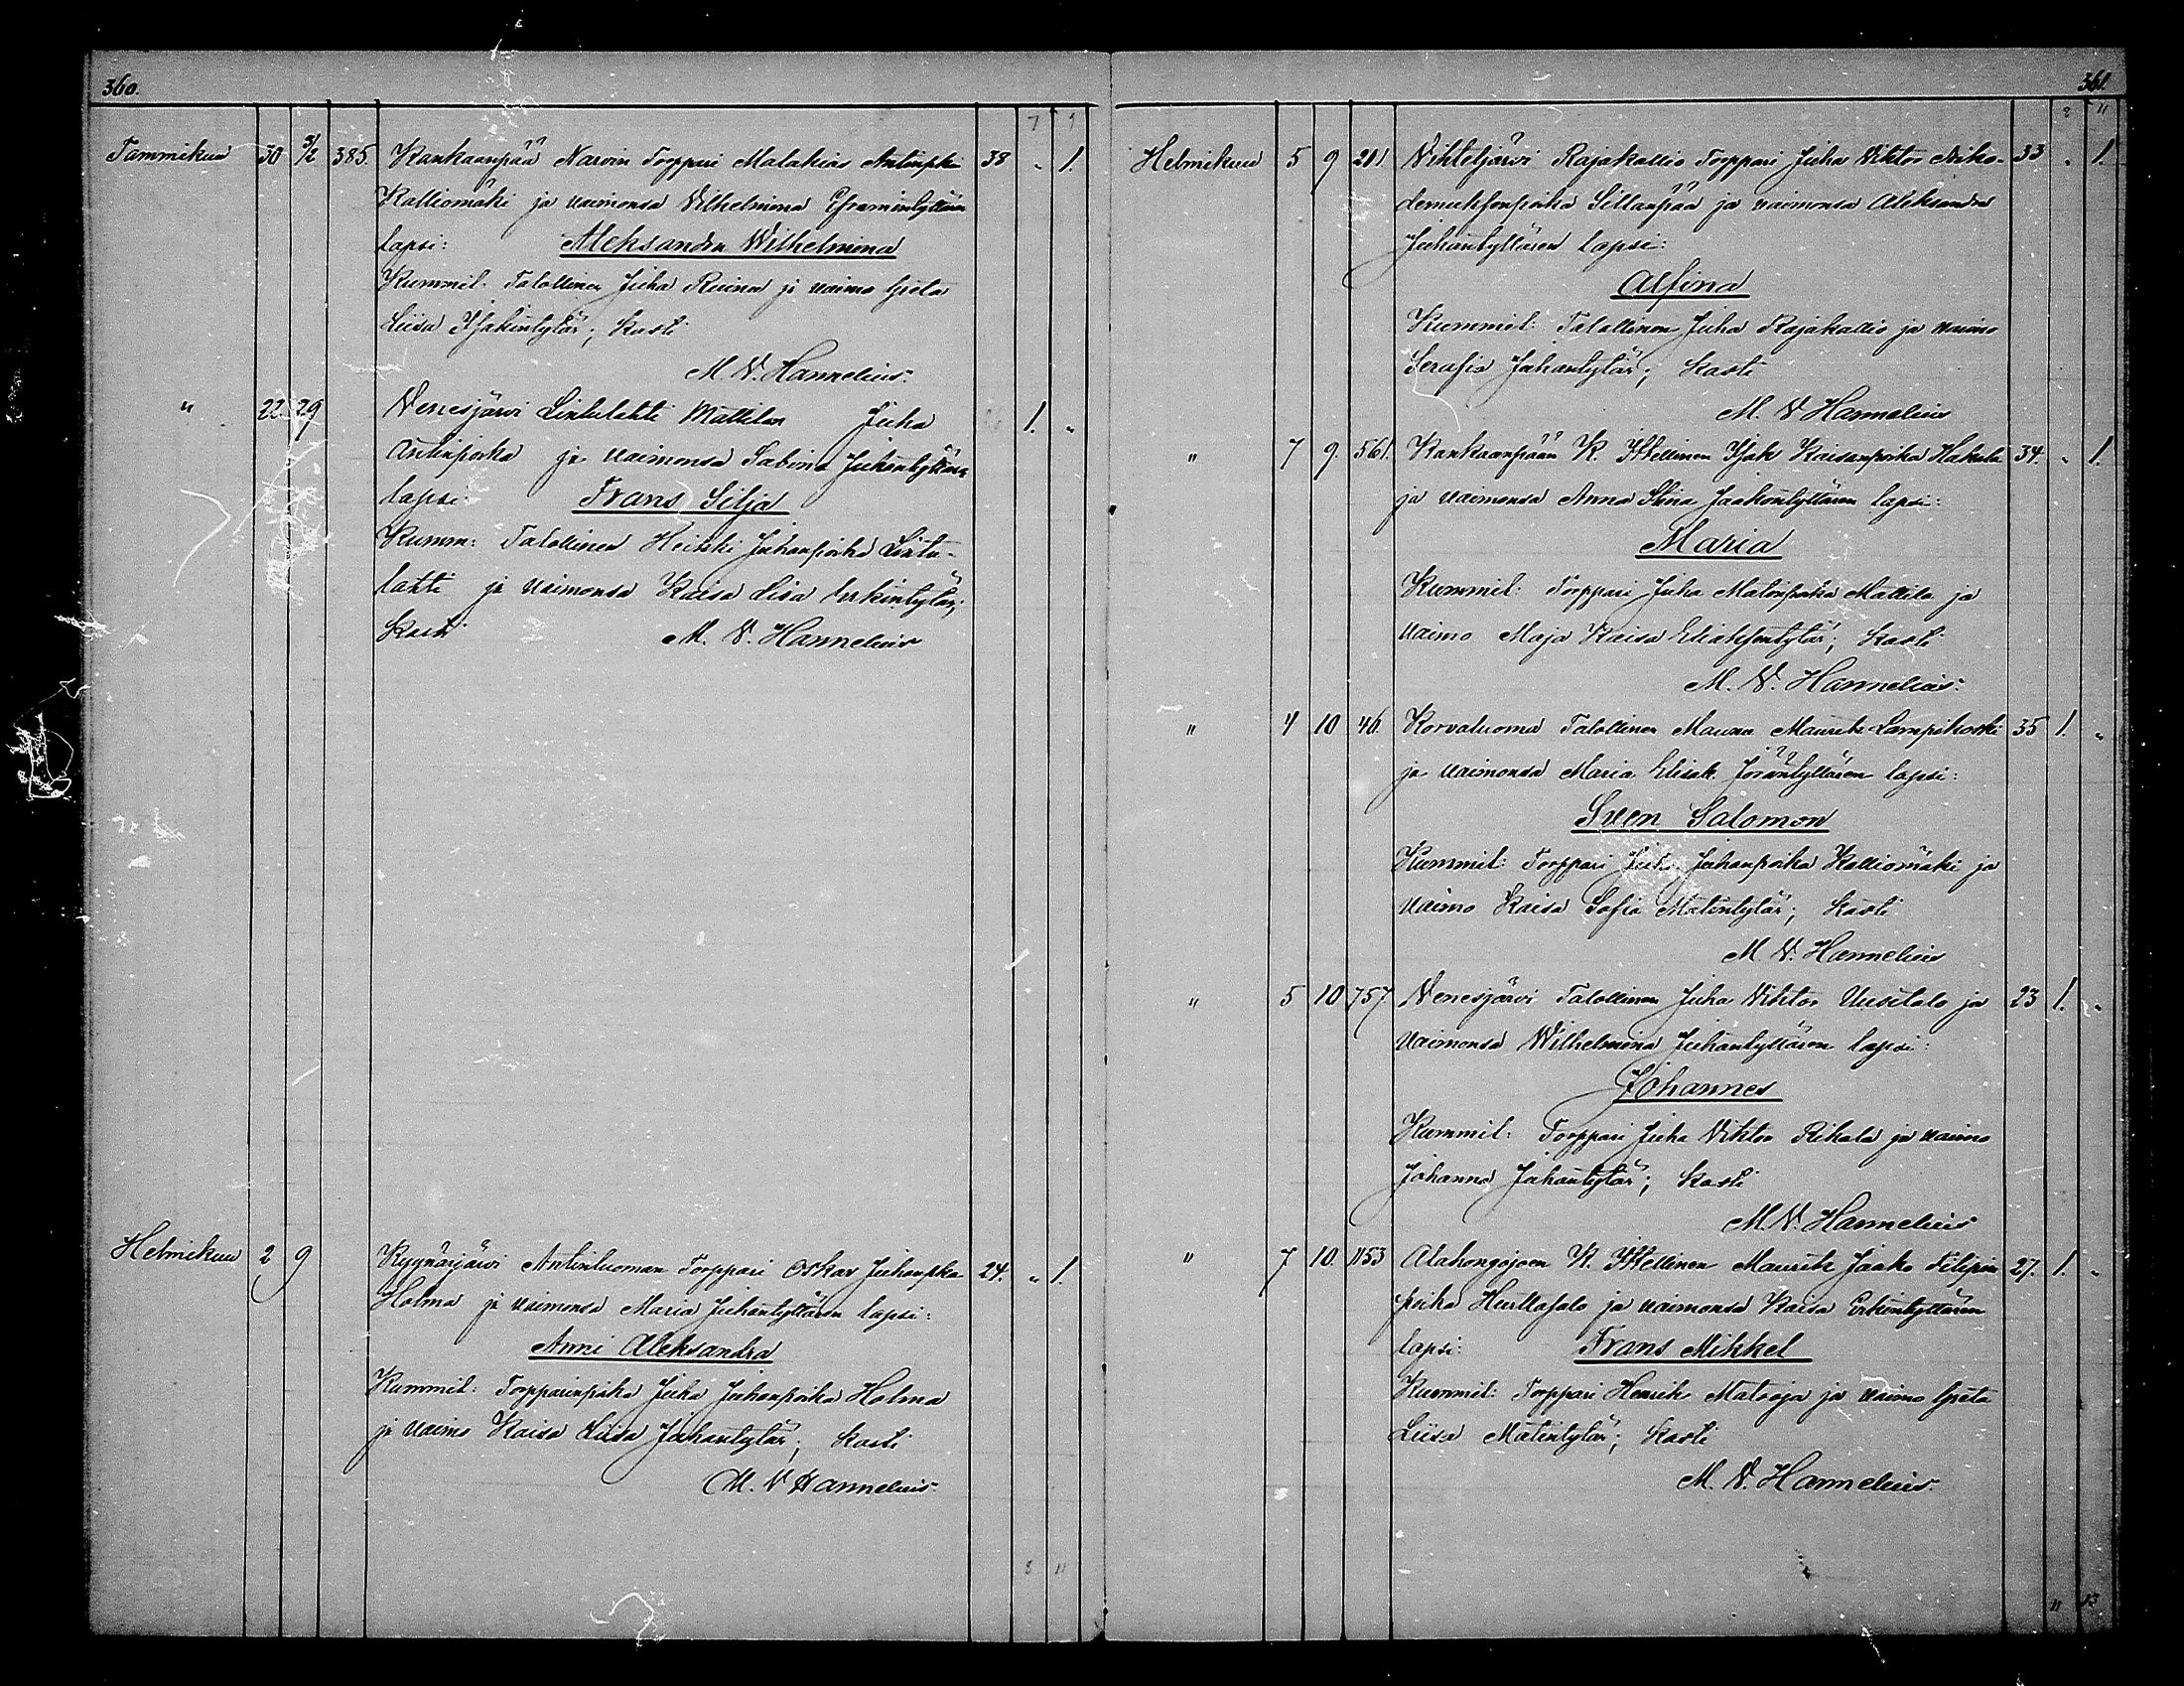 360.
7 9
Tammikuu 30 5/2 385. Kankaanpää Narvin Torppari Malakias Antinpka 38 " 1.
Kalliomäki ja vaimonsa Vilhelmina Eframintyttären
lapsi: Aleksandra Wilhelmina
Kummit. Talollinen Juha Ruina ja vaimo Greta
Liisa Isakintytär; Kasti
M. V. Hannelius.
" 22. 29 Venesjärvi Lintulahti Mattilan Juha 1. "
Antinpoika ja vaimonsa Sabina Juhantyttären
lapsi. Frans Silja
Kumm: Talollinen Heikki Juhanpoika Lintu-
lahti ja vaimonsa Kaisa Lisa Erkintytär;
Kasti M. V. Hannelius
Helmikuu 2 9 Kyynärjärvi Antinluoman Torppari Oskar Juhanpka 24. " 1.
Holma ja vaimonsa Maria Juhantyttären lapsi:
Anni Aleksandra
Kummit: Torpparinpoika Juha Juhanpoika Holma
ja vaimo Kaisa Liisa Juhantytär; Kasti
M. V Hannelius.
8 11
361.
8 11
Helmikuu 5 9 201. Vihteljärvi Rajakallio Torppari Juha Viktor Niko- 33 " 1.
demuksenpoika Sillanpää ja vaimonsa Aleksandra
Juhantyttären lapsi:
Alfina
Kummit: Talollinen Juha Rajakallio ja vaimo
Serafia Juhantytär; Kasti
M. V Hannelius
" 7 9. 561. Kankaanpään K. Itsellinen Isak Kaisanpoika Hakala 34. " 1.
ja vaimonsa Anna Stina Jaakontyttären lapsi:
Maria
Kummit: Torppari Juha Matinpoika Mattila ja
vaimo Maja Kaisa Eliaksentytär; Kasti
M. V. Hannelius.
" 4 10 46. Korvaluoma Talollinen Mauno Maurits Lampikoski 35 1. "
ja vaimonsa Maria Elisab. Jöräntyttären lapsi:
Sven Salomon
Kummit: Torppari Juho Juhanpoika Kalliomäki ja
vaimo Kaisa Sofia Matintytär; Kasti
M. V. Hannelius
" 5 10 757 Venesjärvi Talollinen Juha Viktor Uusitalo ja 23 1. "
vaimonsa Wilhelmina Juhantyttären lapsi:
Johannes
Kummit: Torppari Juha Viktor Rikala ja vaimo
Johanna Juhantytär; Kasti
M. V. Hannelius
" 7 10. 1153 Alahongojoen K. Itsellinen Maurits Jaako Filipin 27. 1. "
poika Hurttasalo ja vaimonsa Kaisa Erkintyttären
lapsi: Frans Mikkel
Kummit: Torppari Henrik Matooja ja vaimo Greta
Liisa Matintytär; Kasti
M. V. Hannelius.
11 13